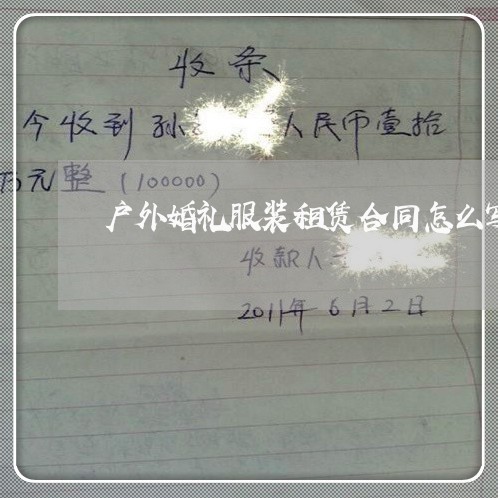 收条
今收到孙 人民币壹拾
万元整（100000）
户外婚礼服装租赁合同怎么写
收款人
2011年6月2日